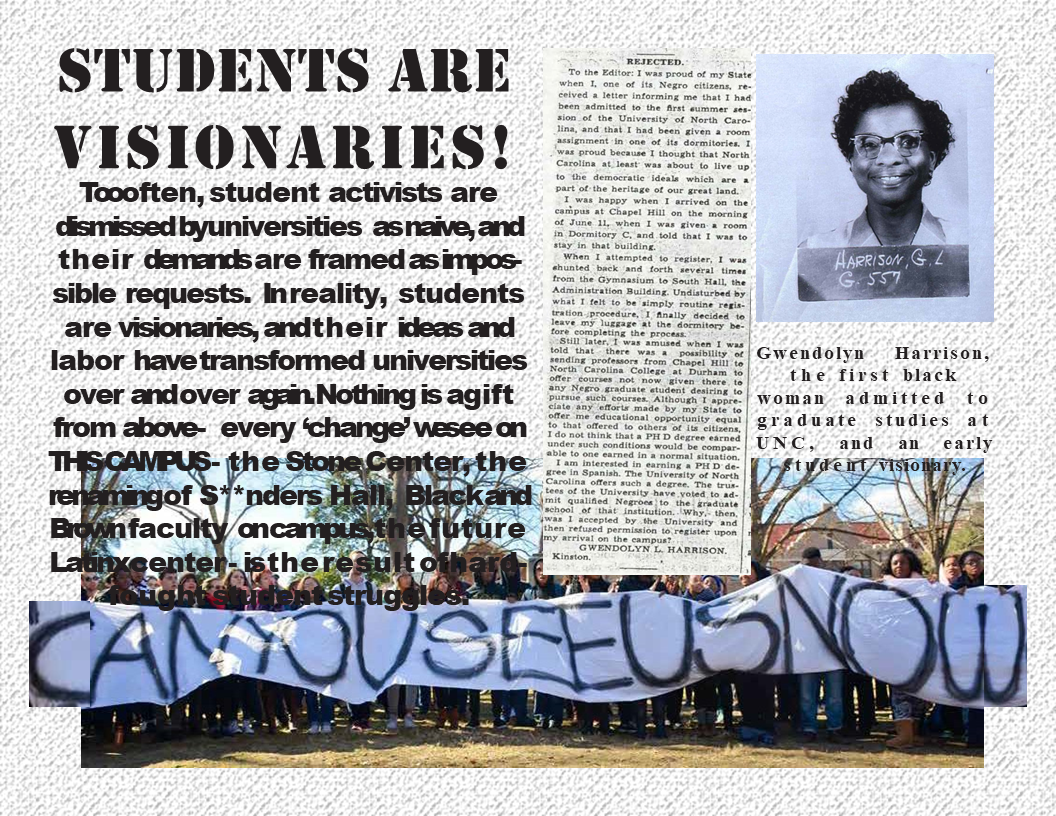 STUDENTS ARE
VISIONARIES!
Too often, student activists are
dismissed by universities as naive, and
their demands are framed as impos-
sible requests. In reality, students
are visionaries, and their ideas and
labor have transformed universities
over and over again. Nothing is a gift
from above- every ‘change’ we see on
THIS CAMPUS- the Stone Center, the
renaming of S**nders Hall, Black and
Brown faculty on campus, the future
Latinx center- is the result of hard-
fought student struggles.
REJECTED.
To the Editor: I was proud of my State
when I, one of its Negro citizens, re-
ceived a letter informing me that I had
been admitted to the first summer ses-
sion of the University of North Caro-
lina, and that I had been given a room
assignment in one of its dormitories. I
was proud because I thought that North
Carolina at least was about to live up
to the democratic ideals which are a
part of the heritage of our great land.
I was happy when I arrived on the
campus at Chapel Hill on the morning
of June 11, when I was given a room
in Dormitory C, and told that I was to
stay in that building.
When I attempted to register, I was
shunted back and forth several times
from the Gymnasium to South Hall, the
Administration Building. Undisturbed by
what I felt to be simply routine regis-
tration procedure, I finally decided to
leave my luggage at the dormitory be-
fore completing the process.
Still later, I was amused when I was
told that there was a possibility of
sending professors from Chapel Hill to
North Carolina College at Durham to
offer courses not now given there to
any Negro graduate student desiring to
pursue such courses. Although I appre-
ciate any efforts made by my State to
offer me educational opportunity equal
to that offered to others of its citizens,
I do not think that a PH D degree earned
under such conditions would be compar-
able to one earned in a normal situation.
I am interested in earning a PH D de-
gree in Spanish. The University of North
Carolina offers such a degree. The trus-
tees of the University have voted to ad-
mit qualified Negroes to the graduate
school of that institution. Why, then,
was I accepted by the University and
then refused permission to register upon
my arrival on the campus?
GWENDOLYN L. HARRISON.
Kinston.
HARRISON, G. L
G. 557
Gwendolyn Harrison,
the first black
woman admitted to
graduate studies at
UNC, and an early
student visionary.
CAN YOU SEE US NOW